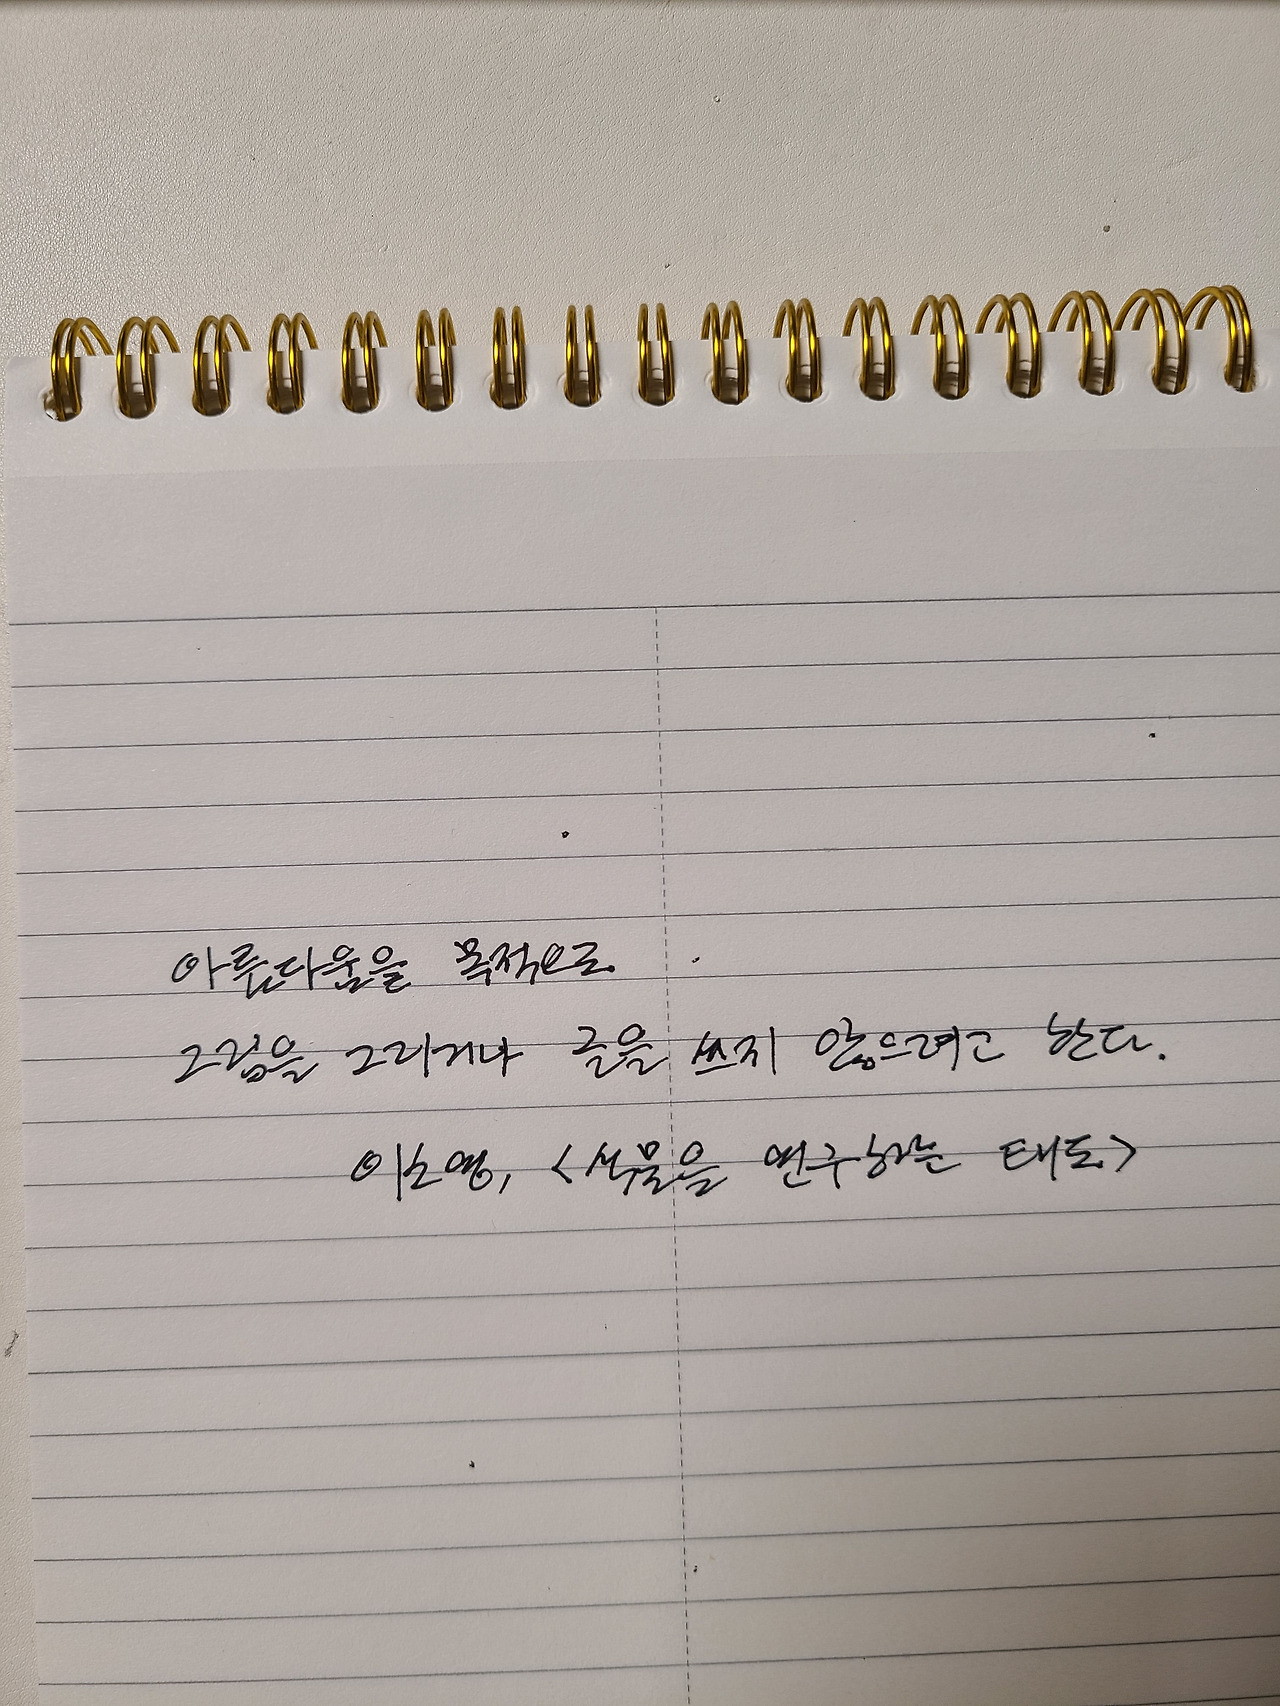 아름다움을 목적으로
그림을 그리거나 글을 쓰지 않으려고 한다.
이소영, <식물을 연구하는 태도>